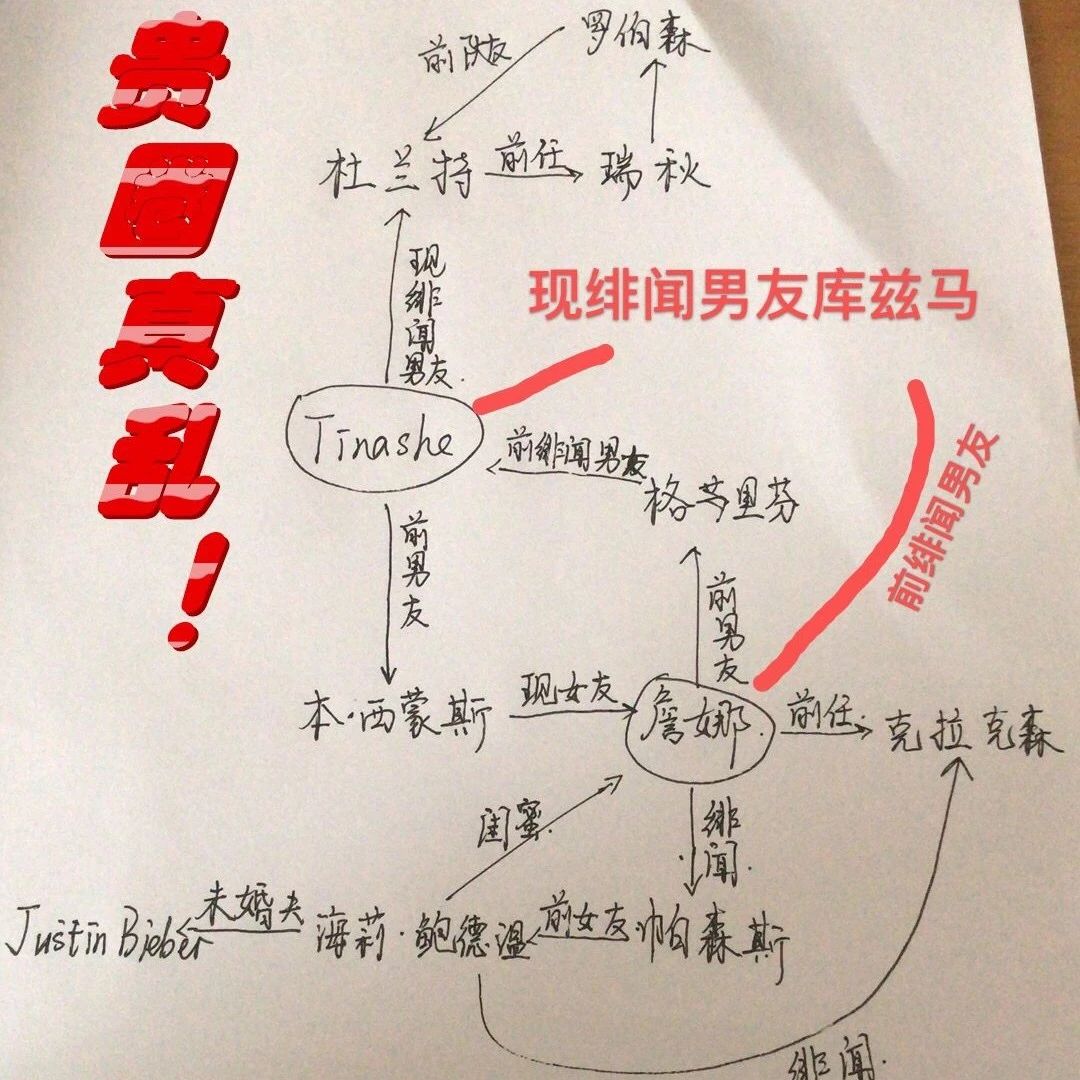 贵圈真乱！
罗伯森
前队友
杜兰特
前任
瑞秋
现绯闻男友.
现绯闻男友库兹马
Tinashe
前绯闻男友
格里芬
前绯闻男友
前男友
前男友
本·西蒙斯
现女友
詹娜.
前任.
克拉克森
闺蜜.
绯闻.
Justin Bieber
未婚夫
海莉·鲍德温
前女友
帕森斯
绯闻.